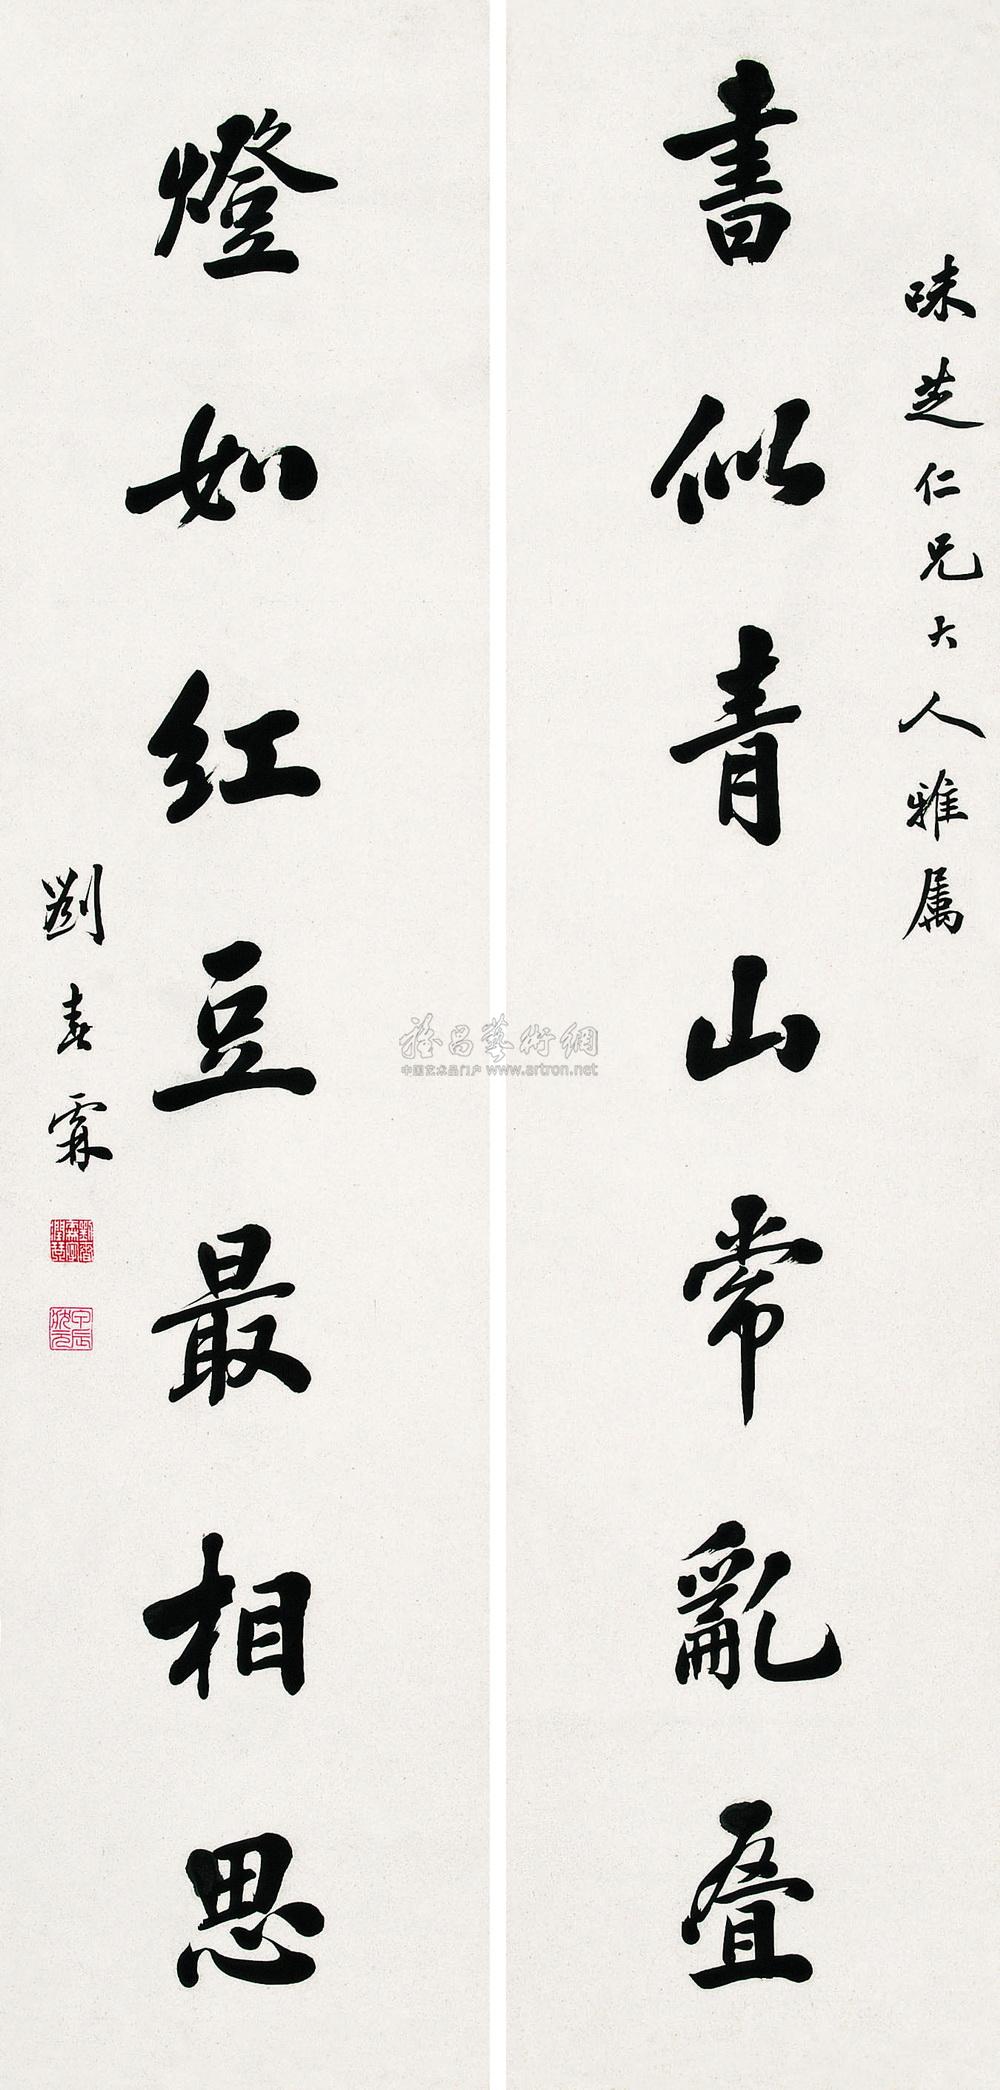 味芝仁兄大人雅属
書似青山常亂叠
燈如红豆最相思
劉春霖
雅昌藝術網
中国艺术品门户 www.artron.net